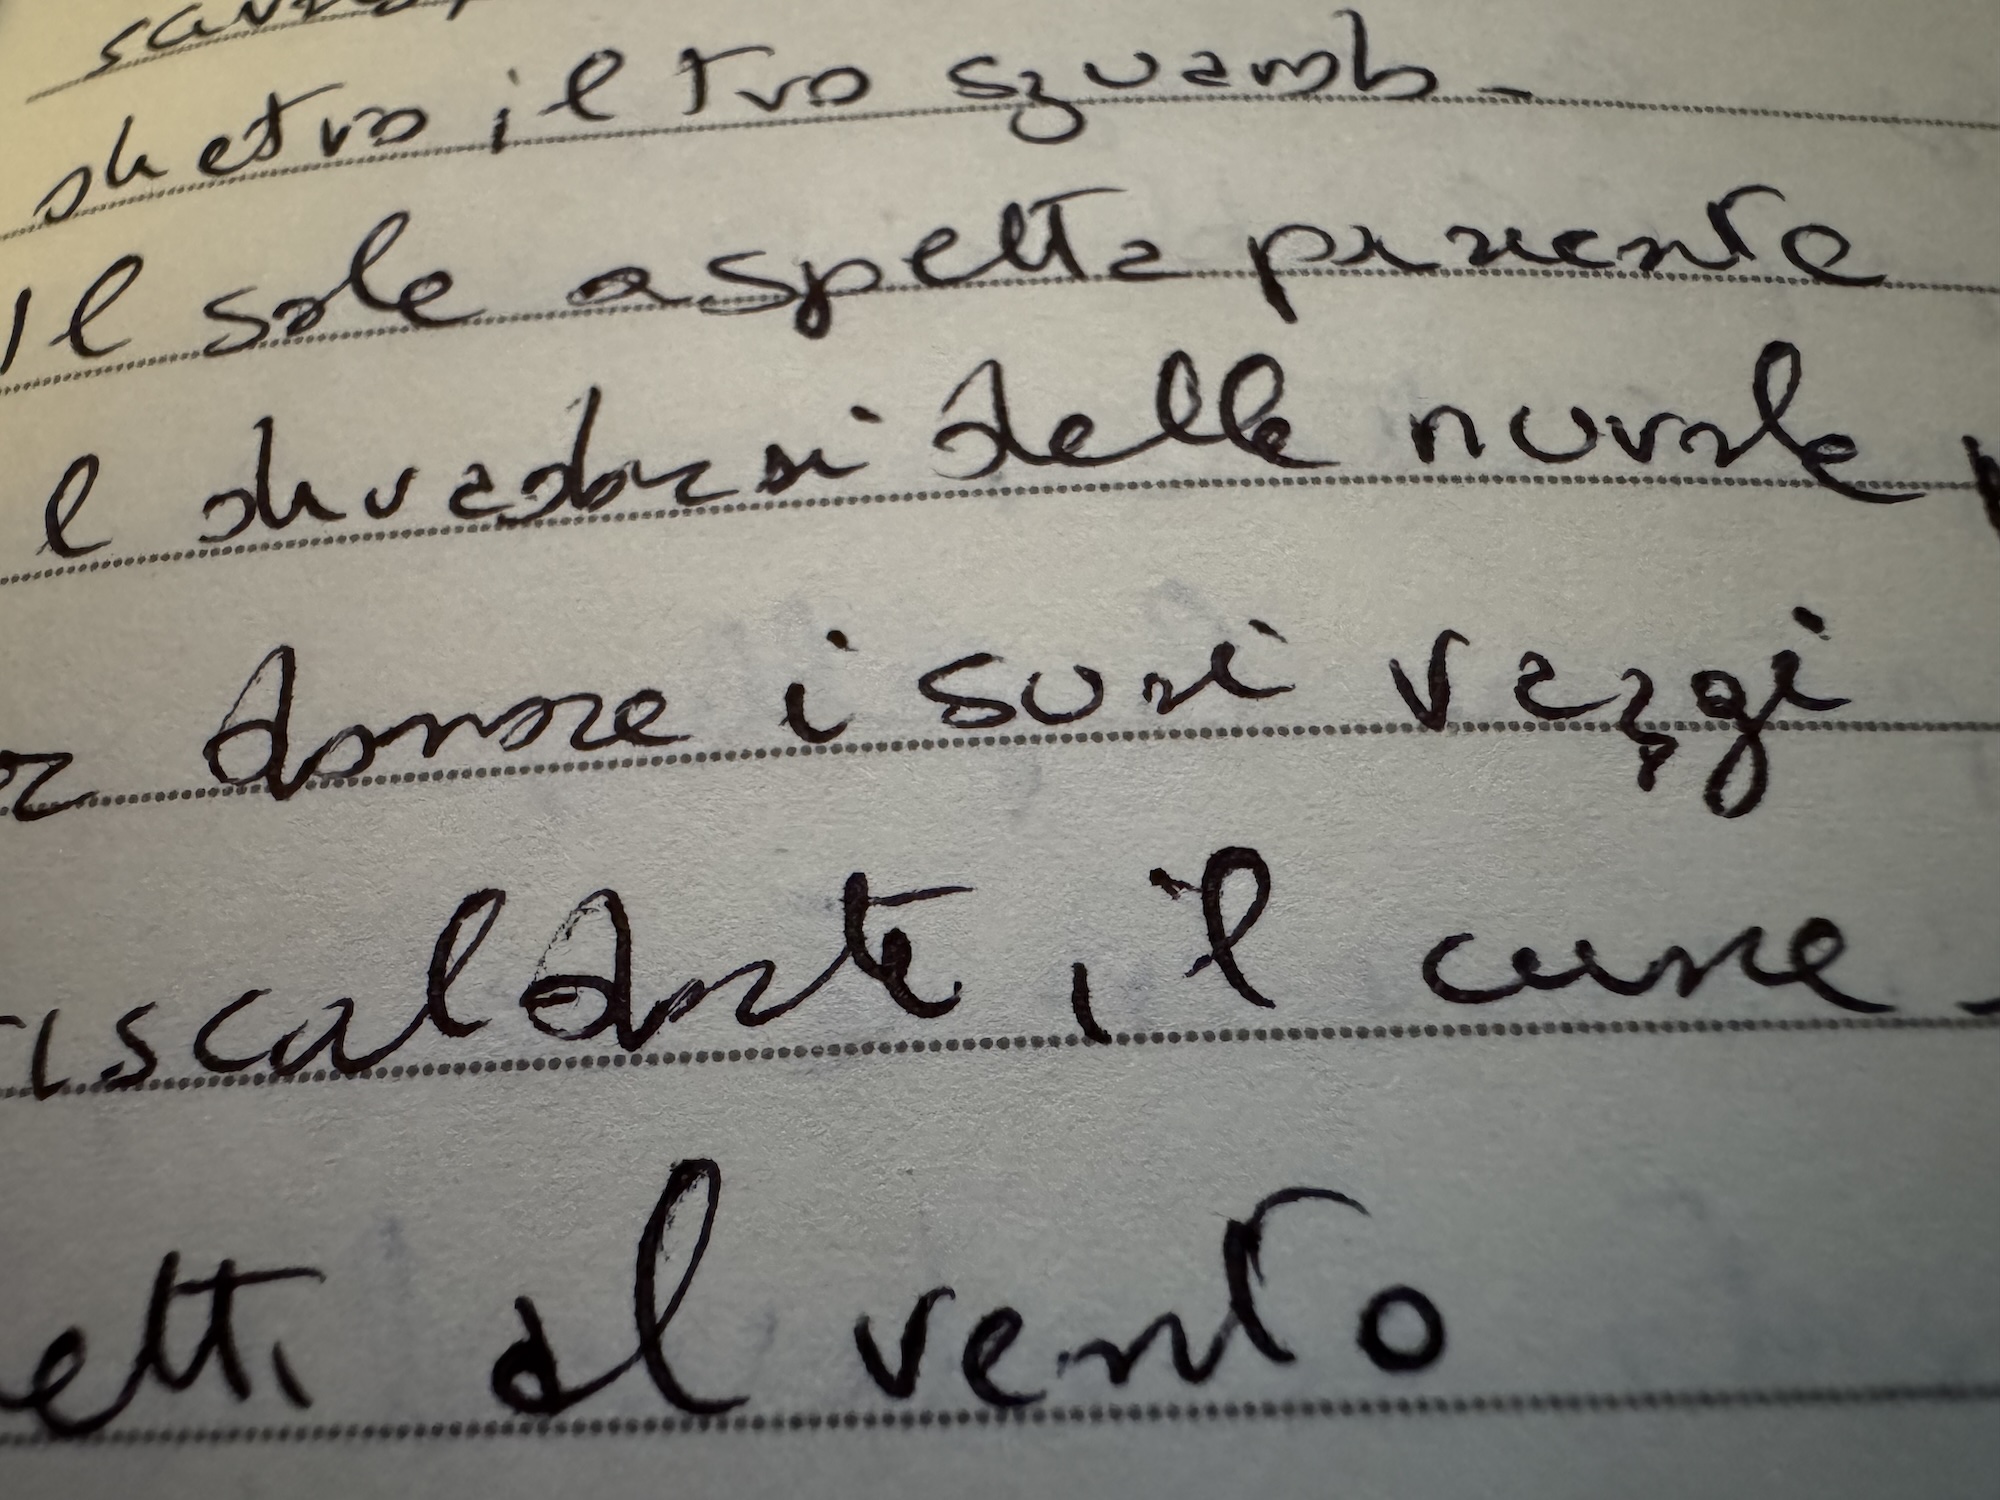 dietro il tuo sguardo
Il sole aspetta paziente
il diradarsi delle nuvole
donare i suoi raggi
riscaldante, il cuore
al vento